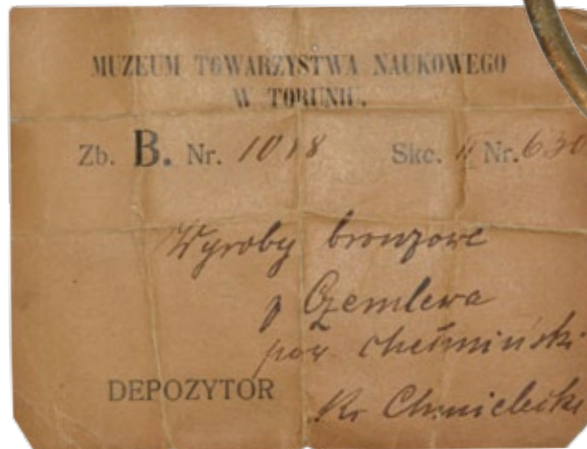 MUZEUM TOWARZYSTWA NAUKOWEGO
W TORUNIU.
Zb. B. Nr. 1018 Skc. II Nr. 630
Wyroby bronzowe
z Czemlewa
pow chełmiński
DEPOZYTOR Chmielecki